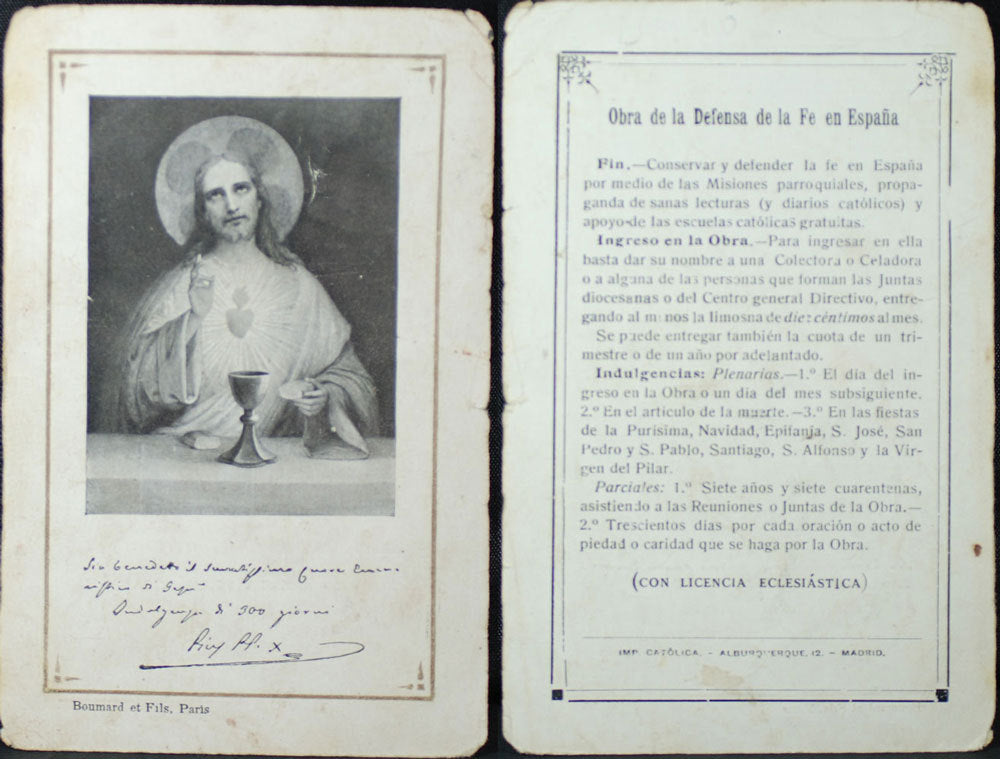 Sia benedetto il Santissimo Cuore Eucari
ristico di Gesù
Indulgenza di 300 giorni
Pius PP. X
Boumard et Fils, Paris
Obra de la Defensa de la Fe en España
Fin.—Conservar y defender la fe en España
por medio de las Misiones parroquiales, propa-
ganda de sanas lecturas (y diarios católicos) y
apoyo de las escuelas católicas gratuitas.
Ingreso en la Obra.—Para ingresar en ella
basta dar su nombre a una Colectora o Celadora
o a alguna de las personas que forman las Juntas
diocesanas o del Centro general Directivo, entre-
gando al menos la limosna de diez céntimos al mes.
Se puede entregar también la cuota de un tri-
mestre o de un año por adelantado.
Indulgencias: Plenarias.—1.º El día del in-
greso en la Obra o un día del mes subsiguiente.
2.º En el artículo de la muerte.—3.º En las fiestas
de la Purísima, Navidad, Epifanía, S. José, San
Pedro y S. Pablo, Santiago, S. Alfonso y la Vir-
gen del Pilar.
Parciales: 1.º Siete años y siete cuarentenas,
asistiendo a las Reuniones o Juntas de la Obra.—
2.º Trescientos días por cada oración o acto de
piedad o caridad que se haga por la Obra.
(CON LICENCIA ECLESIÁSTICA)
IMP. CATÓLICA. - ALBURQUERQUE, 12. - MADRID.